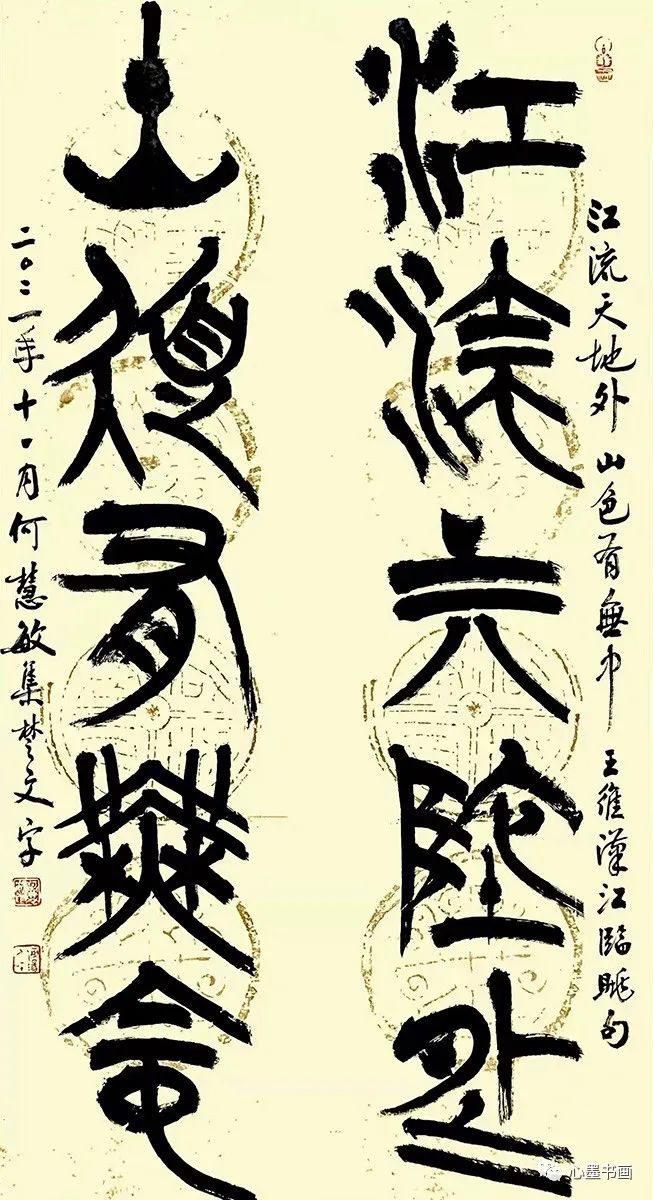 江流天地外 山色有無中 王維漢江臨眺句
江流天地外
山色有無中
二〇二一年十一月何慧敏集楚文字
心墨书画